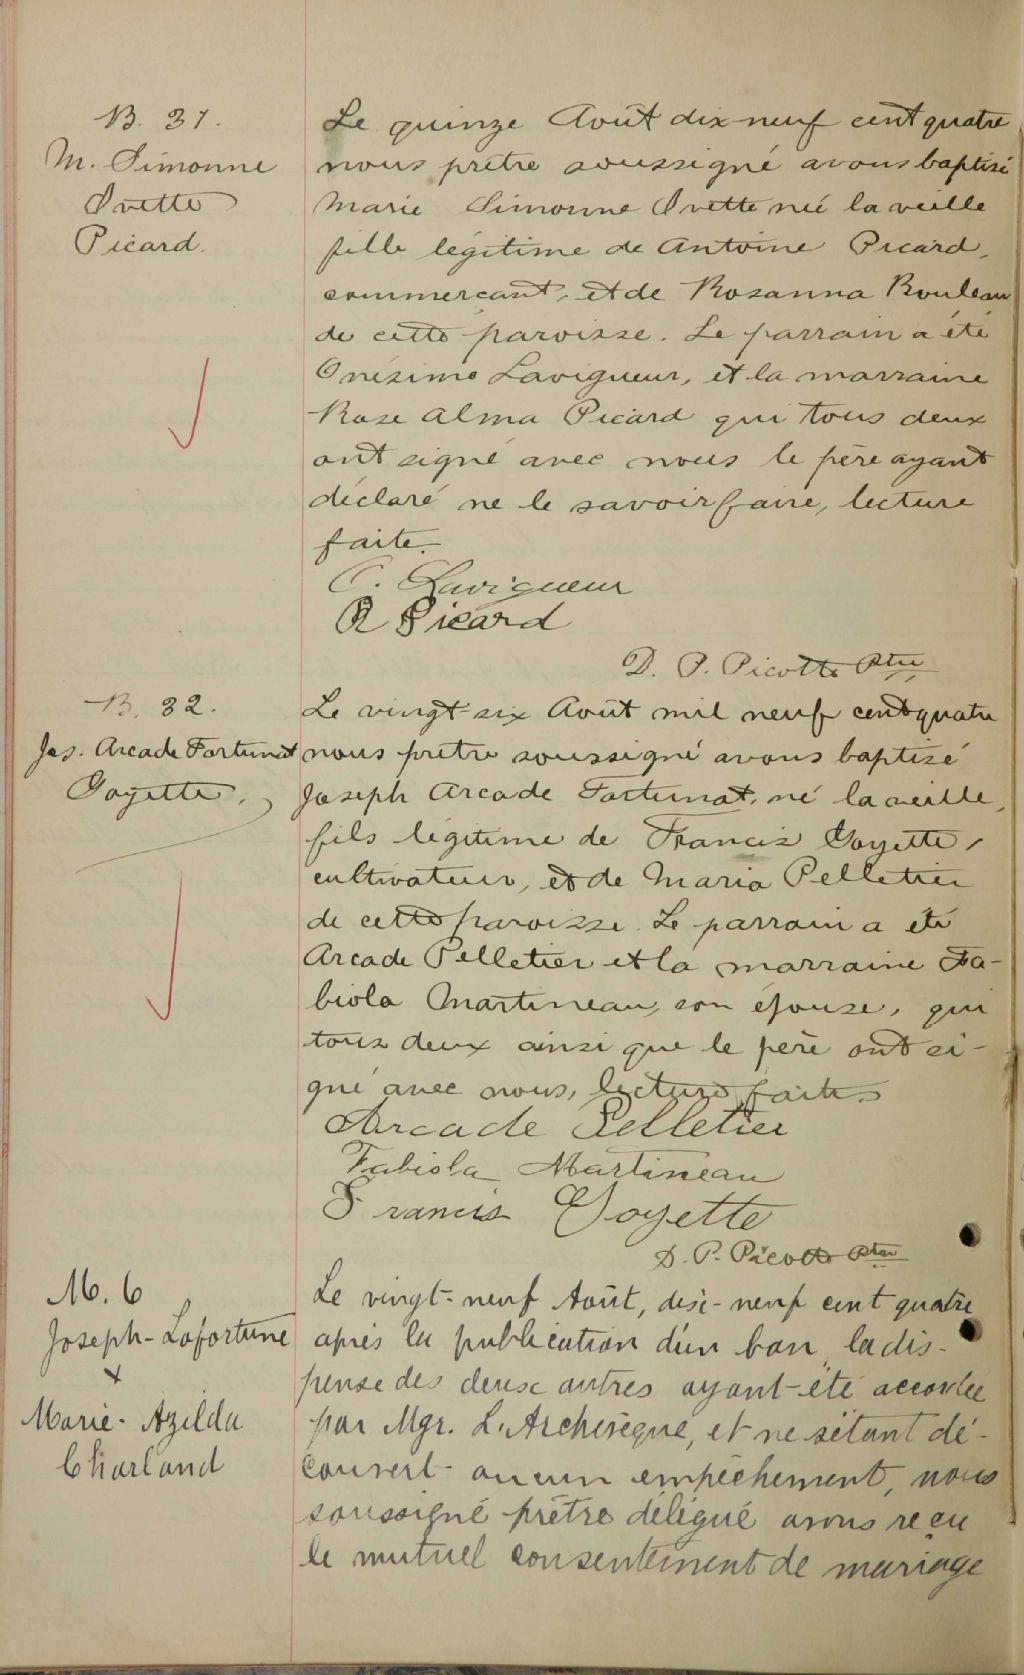 B. 31.
M. Simonne
Ivette
Picard.
Le quinze Août dix-neuf cent quatre
nous prêtre soussigné avons baptisé
Marie Simonne Ivette née la veille
fille légitime de Antoine Picard,
commerçant, et de Rosanna Rouleau
de cette paroisse. Le parrain a été
Onésime Lavigueur, et la marraine
Rose Alma Picard qui tous deux
ont signé avec nous le père ayant
déclaré ne le savoir faire, lecture
faite.
O. Lavigueur
R Picard
D. P. Picotte Ptre
B. 32.
Jos. Arcade Fortunat
Goyette.
Le vingt-six Août mil neuf cent quatre
nous prêtre soussigné avons baptisé
Joseph Arcade Fortunat, né la veille,
fils légitime de Francis Goyette,
cultivateur, et de Maria Pelletier
de cette paroisse. Le parrain a été
Arcade Pelletier et la marraine Fa-
biola Martineau, son épouse, qui
tous deux ainsi que le père ont si-
gné avec nous, lecture faite.
Arcade Pelletier
Fabiola Martineau
Francis Goyette
D. P. Picotte Ptre
M. 6
Joseph-Lofortune
+
Marie-Azilda
Charland
Le vingt-neuf Août, dix-neuf cent quatre
après la publication d'un ban, la dis-
pense des deux autres ayant été accordée
par Mgr. L'Archevêque, et ne s'étant dé-
couvert aucun empêchement, nous
soussigné prêtre délégué avons reçu
le mutuel consentement de mariage